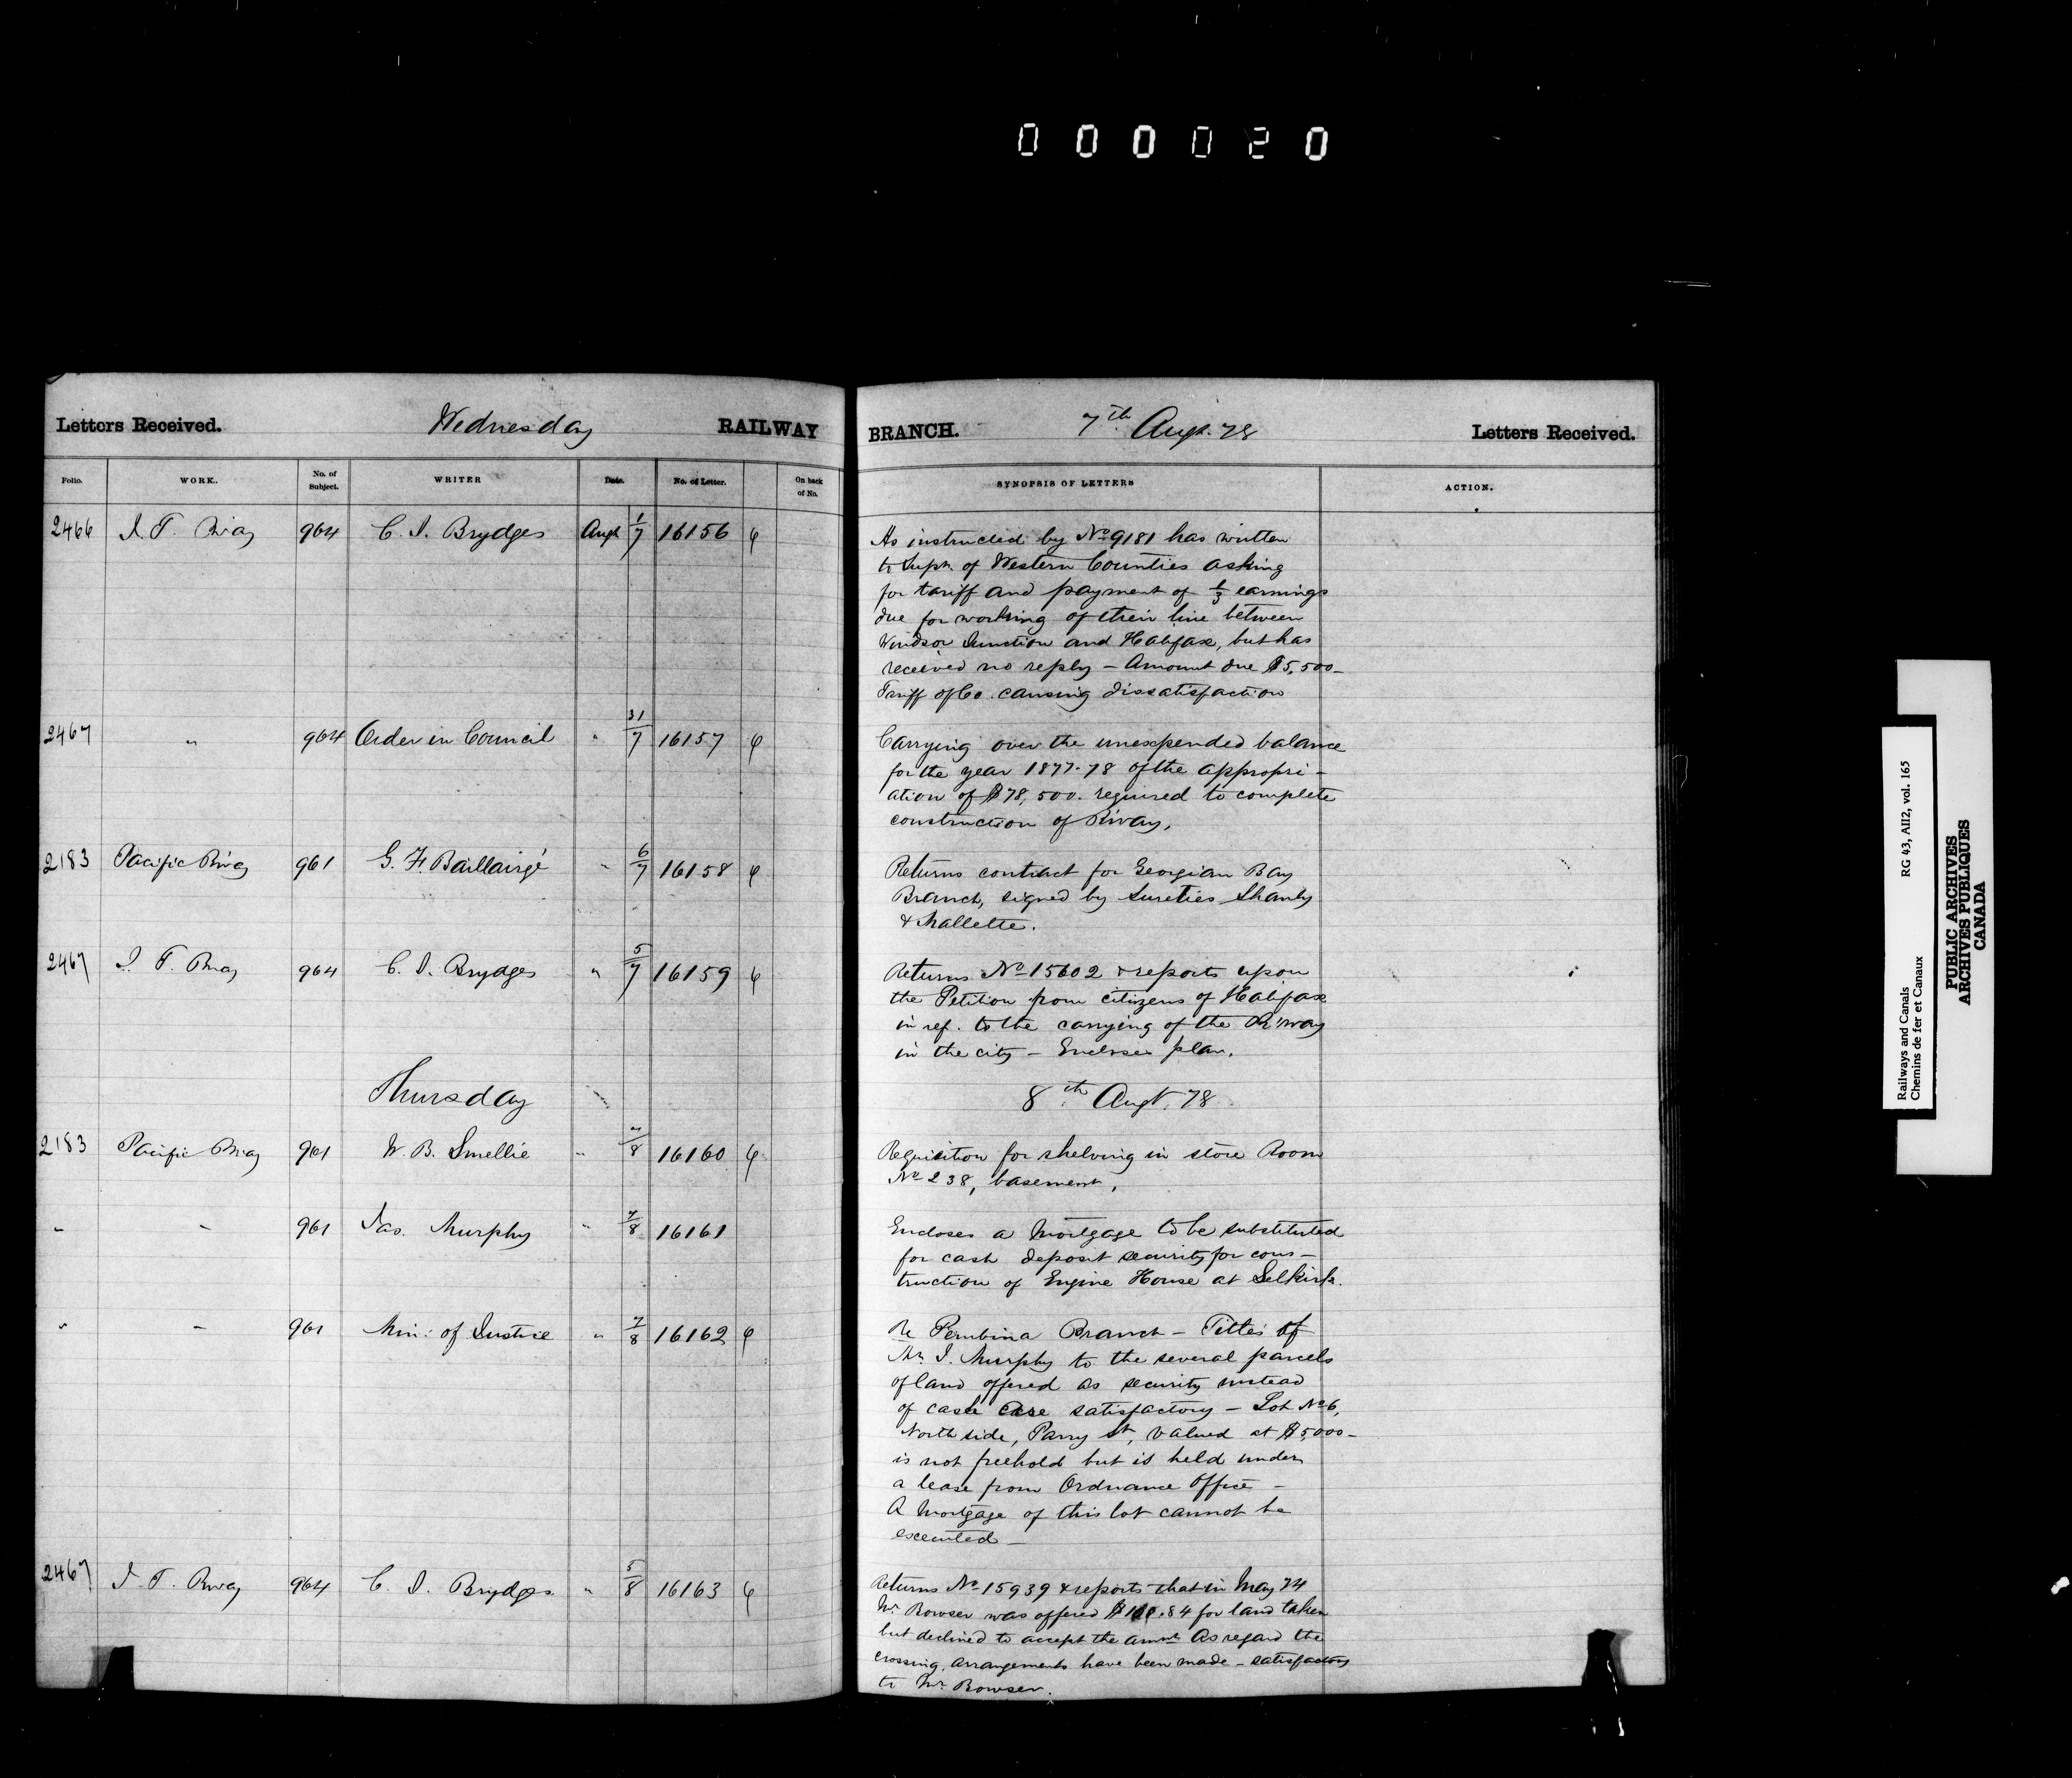 000020
Letters Received. Wednesday RAILWAY BRANCH. 7th Augt. 78 Letters Received.
Folio. WORK. No. of Subject. WRITER Date. No. of Letter. On back of No. SYNOPSIS OF LETTERS ACTION.
2466 I. T. R'way 964 C. J. Brydges Augt 1/7 16156
As instructed by No 9181 has written
to Supt. of Western Counties asking
for tariff and payment of 1/3 earnings
due for working of their line between
Windsor Junction and Halifax, but has
received no reply – Amount due $5,500–
Tariff of Co. causing dissatisfaction
2467 " 964 Order in Council " 31/7 16157
Carrying over the unexpended balance
for the year 1877-78 of the appropri-
ation of $78,500. required to complete
construction of R'way,
2183 Pacific R'way 961 G. F. Baillairgé " 6/7 16158
Returns contract for Georgian Bay
Branch, signed by sureties Shanly
& Mallette.
2467 I. T. R'way 964 C. J. Brydges " 5/7 16159
Returns No 15602 & reports upon
the Petition from citizens of Halifax
in ref. to the carrying of the R'way
in the city – Encloses plan.
Thursday 8th Augt. 78
2183 Pacific R'way 961 W. B. Smellie " 7/8 16160
Requisition for shelving in store Room
No 238, basement,
" " 961 Jas. Murphy " 7/8 16161
Encloses a Mortgage to be substituted
for cash deposit security for cons-
truction of Engine House at Selkirk.
" " 961 Min: of Justice " 7/8 16162
Re Pembina Branch – Titles of
Mr. J. Murphy to the several parcels
of land offered as security instead
of cash are satisfactory – Lot No 6,
North side, Parry St, valued at $5,000–
is not freehold but is held under
a lease from Ordnance Office –
A Mortgage of this lot cannot be
executed –
2467 I. T. R'way 964 C. J. Brydges " 5/8 16163
Returns No 15939 & reports that in May 74
Mr Bowser was offered for land taken
but declined to accept the amnt. As regard the
crossing, arrangements have been made – satisfactory
to Mr. Bowser.
Railways and Canals RG 43, AII2, vol. 165
Chemins de fer et Canaux
PUBLIC ARCHIVES
ARCHIVES PUBLIQUES
CANADA